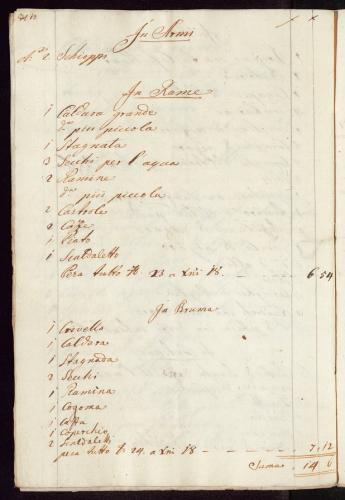 In Armi
N.º 2 Schioppi
In Rame
1 Caldara grande
d.ª piu piccola
1 Stagnata
3 Secchi per l'aqua
2 Ramine
d.ª piu piccola
2 Castrole
2 Cazze
1 Piato
1 Scaldaletto
Pesa tutto 23 a 18 6 54
In Bruma
1 Covella
1 Caldara
1 Stagnada
2 Secchi
1 Ramina
1 Cogoma
1 Cassa
1 Coperchio
2 Scaldaletti
pesa tutto 24 a 18 7 12
Suma 14 6